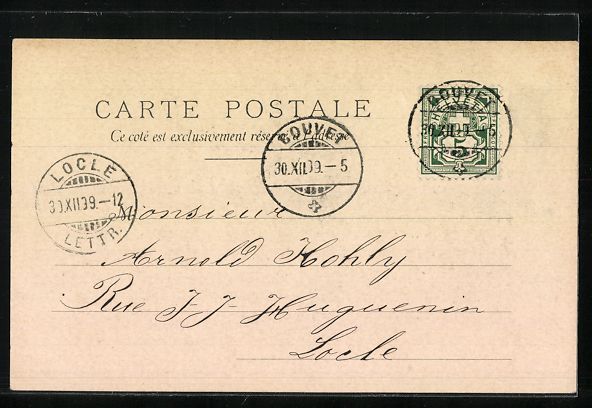 CARTE POSTALE
Ce coté est exclusivement réservé à l'adresse
COUVET
30.XII.99.–5
COUVET
30.XII.99.–5
HELVETIA
LOCLE
30.XII.99.–12
LETTR.
Monsieur
Arnold Hohly
Rue J-J- Huguenin
Locle